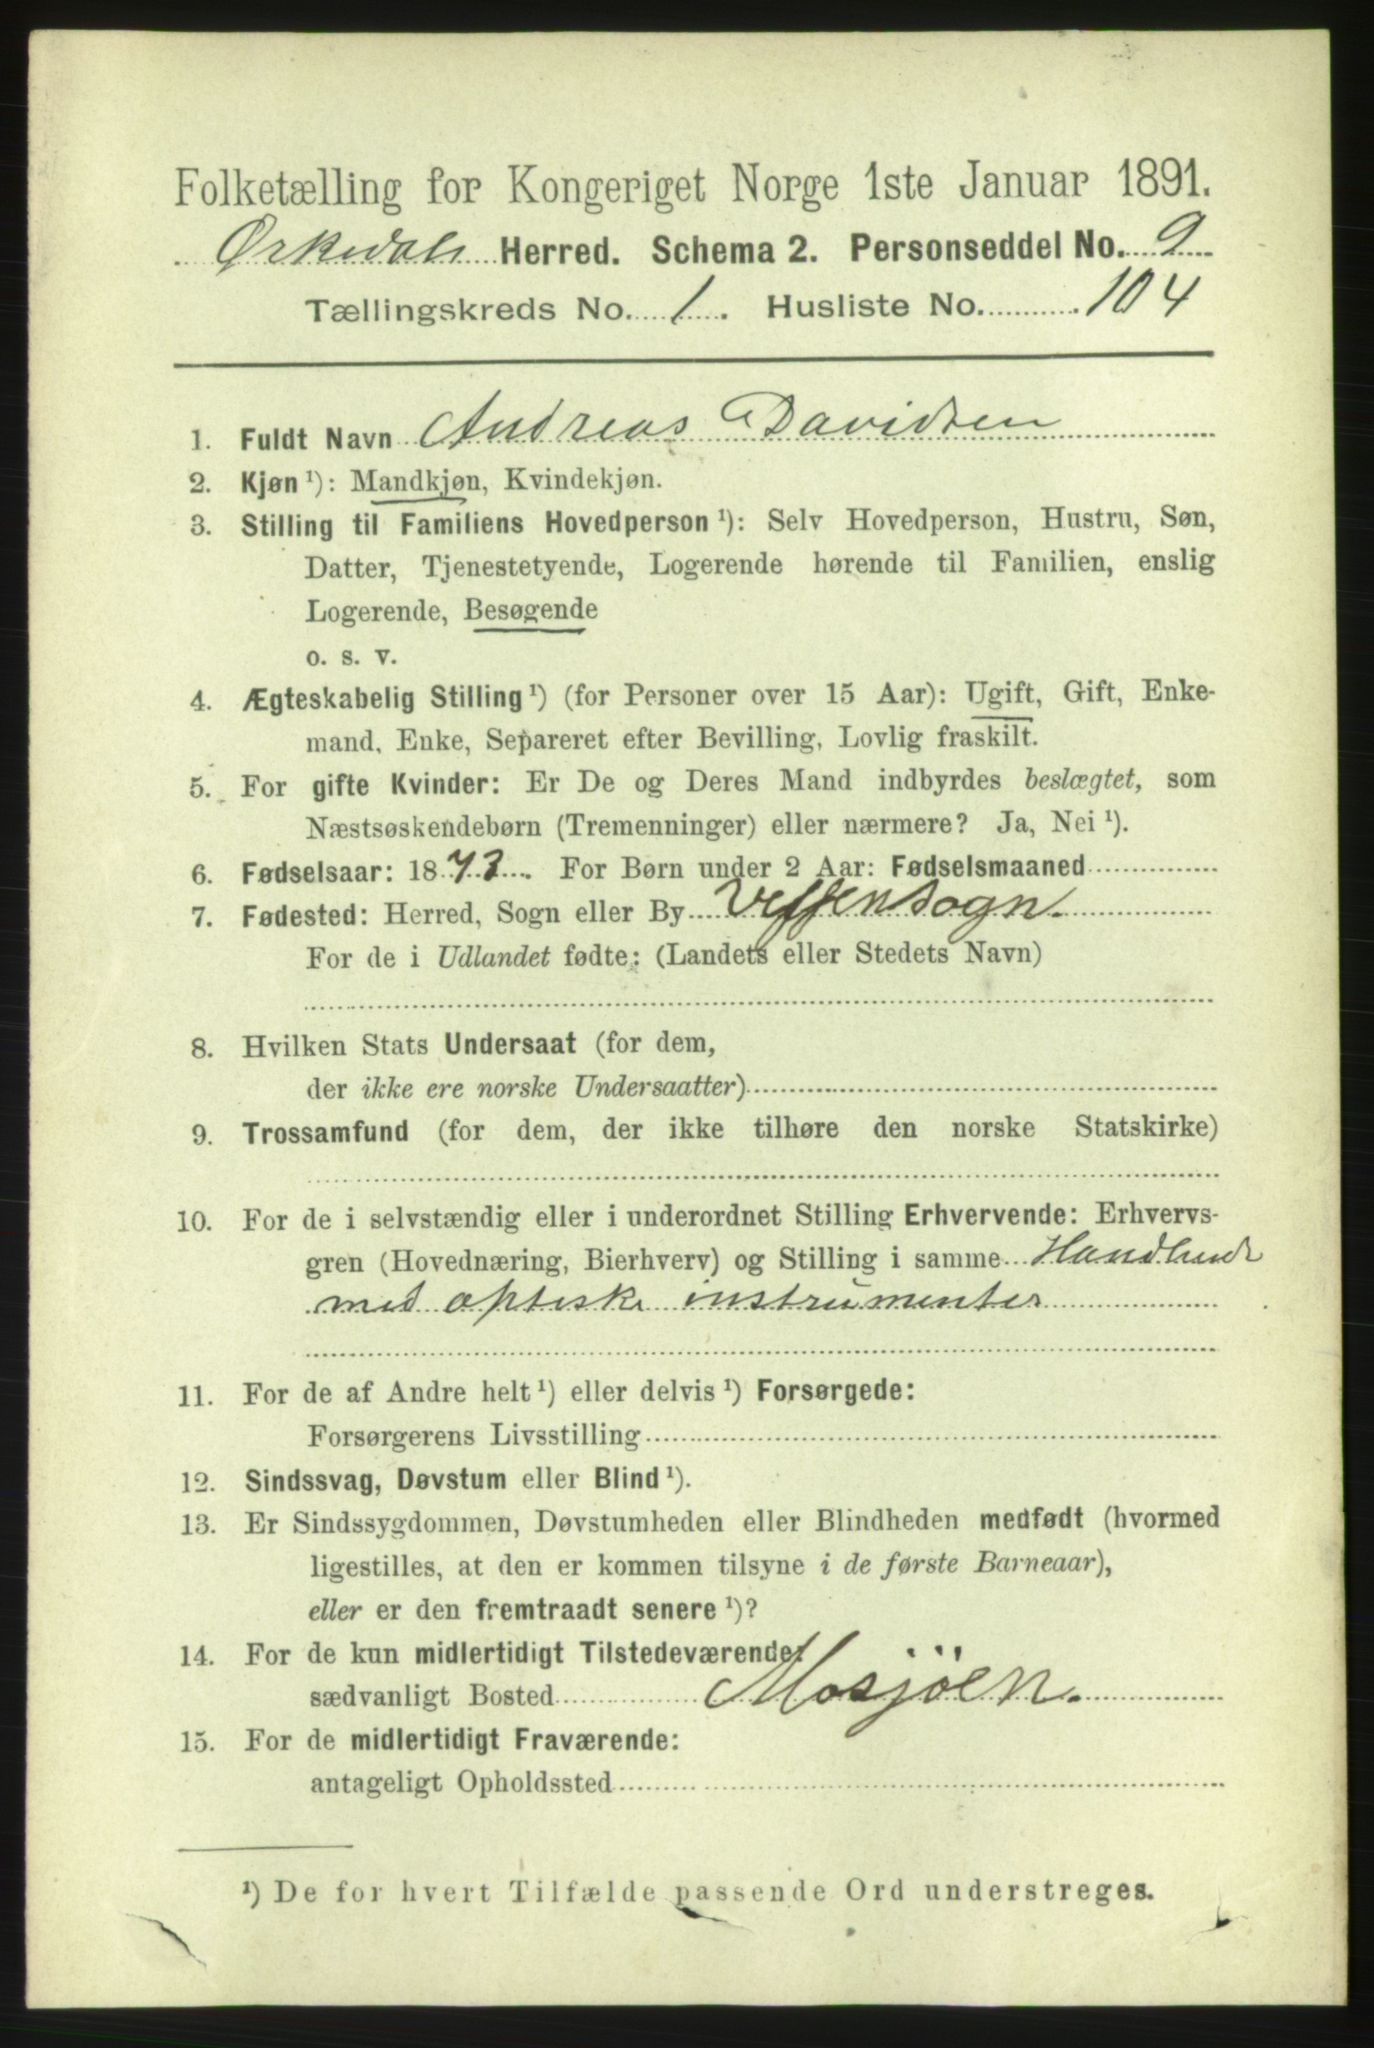 Folketælling for Kongeriget Norge 1ste Januar 1891.
Ørkedals Herred. Schema 2. Personseddel No. 9
Tællingskreds No. 1. Husliste No. 104
1. Fuldt Navn Andreas Davidsen
2. Kjøn ¹): Mandkjøn, Kvindekjøn.
3. Stilling til Familiens Hovedperson ¹): Selv Hovedperson, Hustru, Søn,
Datter, Tjenestetyende, Logerende hørende til Familien, enslig
Logerende, Besøgende
o. s. v.
4. Ægteskabelig Stilling ¹) (for Personer over 15 Aar): Ugift, Gift, Enke-
mand, Enke, Separeret efter Bevilling, Lovlig fraskilt.
5. For gifte Kvinder: Er De og Deres Mand indbyrdes beslægtet, som
Næstsøskendebørn (Tremenninger) eller nærmere? Ja, Nei ¹).
6. Fødselsaar: 1873. For Børn under 2 Aar: Fødselsmaaned
7. Fødested: Herred, Sogn eller By Veffensogn.
For de i Udlandet fødte: (Landets eller Stedets Navn)
8. Hvilken Stats Undersaat (for dem,
der ikke ere norske Undersaatter)
9. Trossamfund (for dem, der ikke tilhøre den norske Statskirke)
10. For de i selvstændig eller i underordnet Stilling Erhvervende: Erhvervs-
gren (Hovednæring, Bierhverv) og Stilling i samme Handlende
med optiske instrumenter
11. For de af Andre helt ¹) eller delvis ¹) Forsørgede:
Forsørgerens Livsstilling
12. Sindssvag, Døvstum eller Blind ¹).
13. Er Sindssygdommen, Døvstumheden eller Blindheden medfødt (hvormed
ligestilles, at den er kommen tilsyne i de første Barneaar),
eller er den fremtraadt senere ¹)?
14. For de kun midlertidigt Tilstedeværende:
sædvanligt Bosted Mosjöen.
15. For de midlertidigt Fraværende:
antageligt Opholdssted
¹) De for hvert Tilfælde passende Ord understreges.